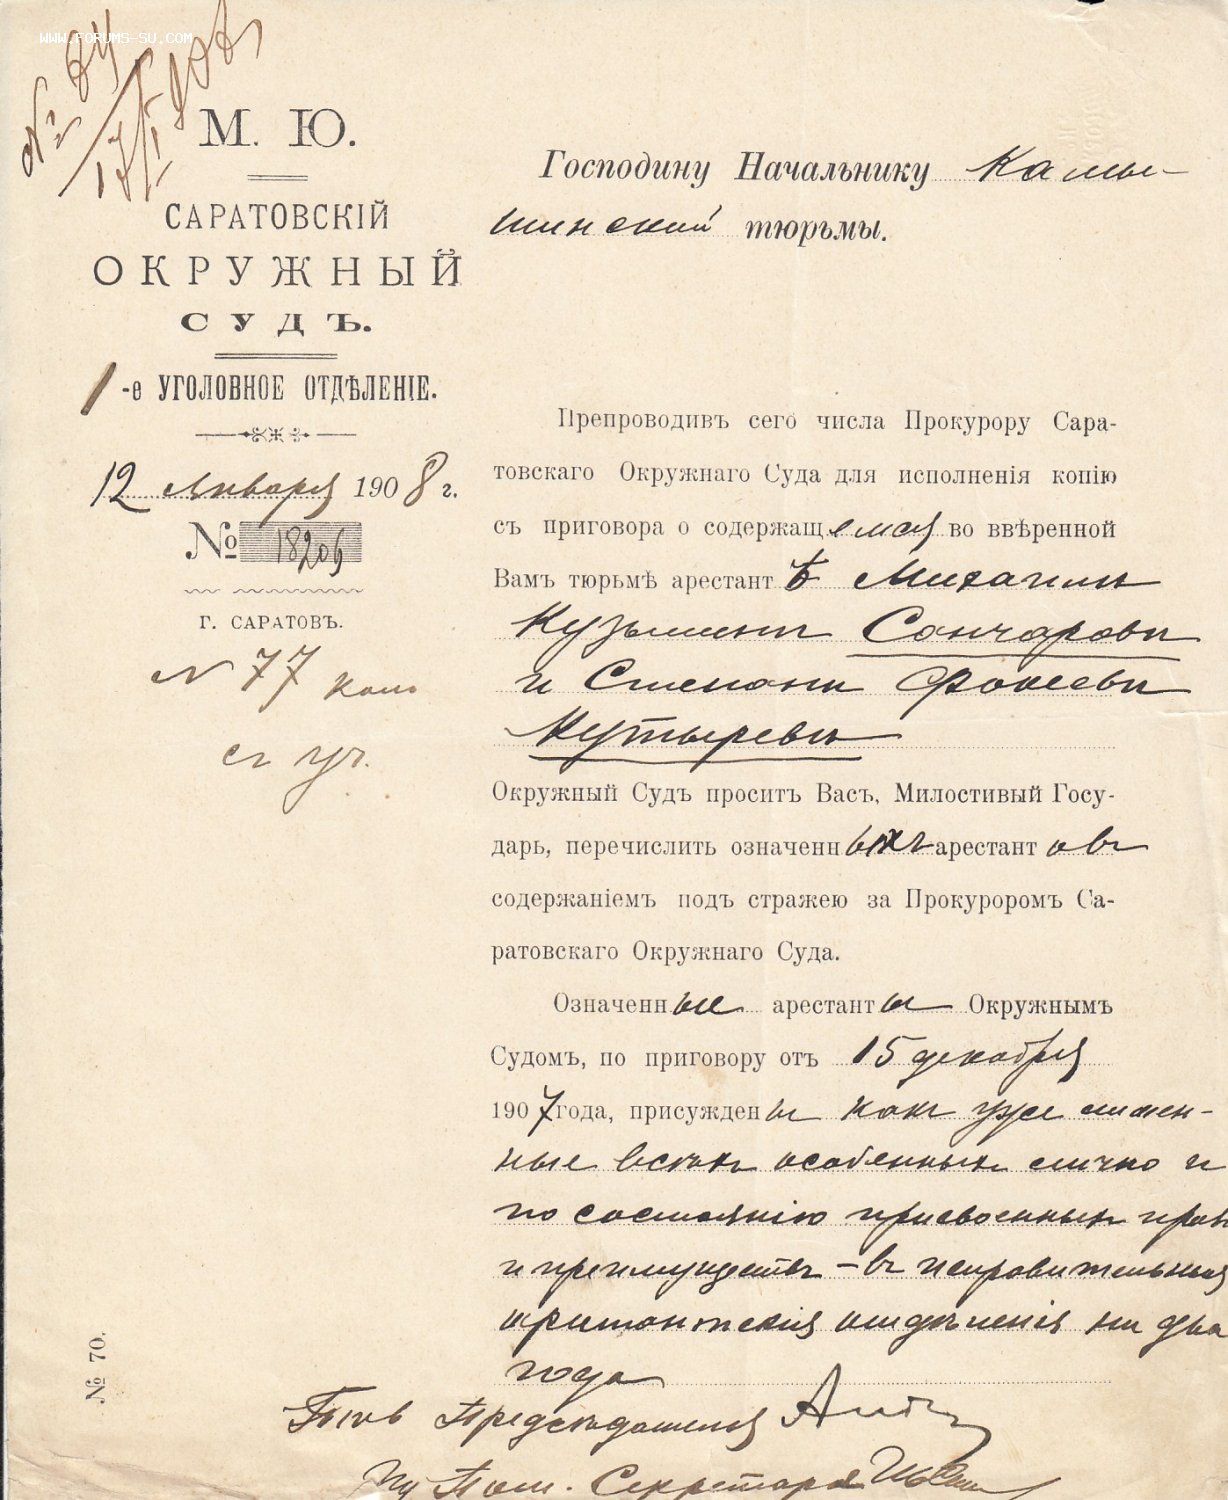 WWW.FORUMS-SU.COM
№ 84
17/I 908
М. Ю.
САРАТОВСКІЙ
ОКРУЖНЫЙ
СУДЪ.
1-е УГОЛОВНОЕ ОТДѢЛЕНІЕ.
12 января 1908 г.
№ 18206
Г. САРАТОВЪ.
N 77
Господину Начальнику Камы-
шинской тюрьмы.
Препроводивъ сего числа Прокурору Сара-
товскаго Окружнаго Суда для исполненія копію
съ приговора о содержащемся во ввѣренной
Вамъ тюрьмѣ арестантѣ Михаилѣ
Кузьминѣ Гончаровѣ
и Степанѣ Фокеевѣ
Кутыревѣ
Окружный Судъ проситъ Васъ, Милостивый Госу-
дарь, перечислить означенныхъ арестантовъ
содержаніемъ подъ стражею за Прокуроромъ Са-
ратовскаго Окружнаго Суда.
Означенные арестанты Окружнымъ
Судомъ, по приговору отъ 15 декабря
1907 года, присуждены какъ уже лишен-
ные всѣхъ особенныхъ лично и
по состоянію присвоенныхъ правъ
и преимуществъ – въ исправительныя
арестантскія отдѣленія на два
года
Предсѣдателя
Пом. Секретаря
№ 70.